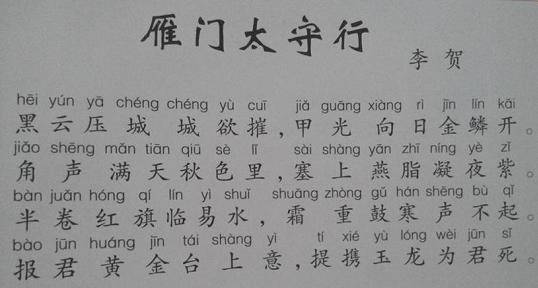 雁门太守行
李贺
hēi yún yā chéng chéng yù cuī jiǎ guāng xiàng rì jīn lín kāi
黑云压城城欲摧,甲光向日金鳞开。
jiǎo shēng mǎn tiān qiū sè lǐ sài shàng yān zhī níng yè zǐ
角声满天秋色里,塞上燕脂凝夜紫。
bàn juǎn hóng qí lín yì shuǐ shuāng zhòng gǔ hán shēng bù qǐ
半卷红旗临易水,霜重鼓寒声不起。
bào jūn huáng jīn tái shàng yì tí xié yù lóng wèi jūn sǐ
报君黄金台上意,提携玉龙为君死。